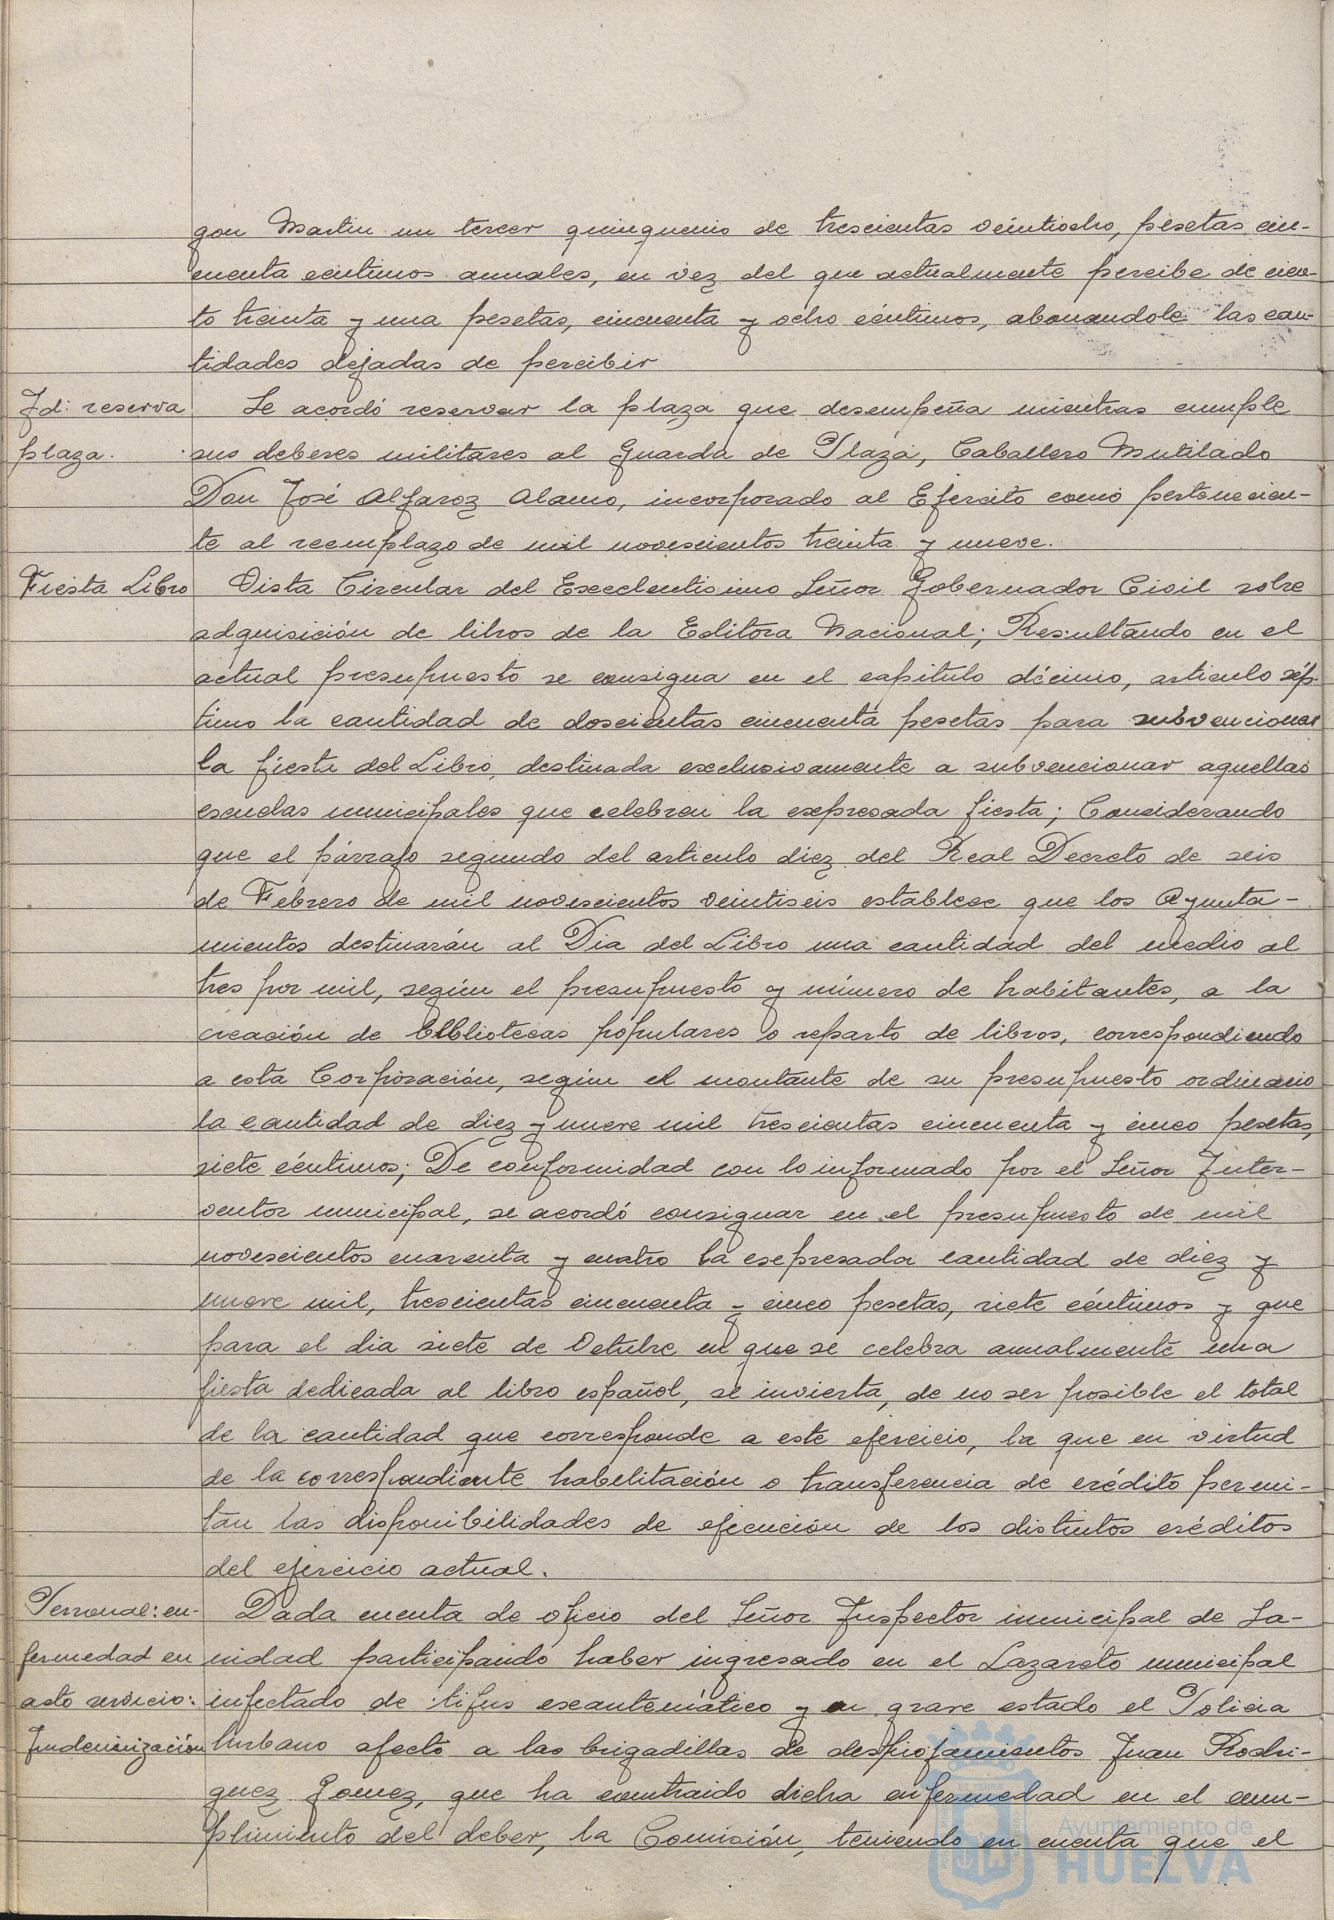 gon Martin un tercer quinquenio de trescientas veintiocho, pesetas cin-
cuenta centimos anuales, en vez del que actualmente percibe de cien-
to treinta y una pesetas, cincuenta y ocho céntimos, abonandole las can-
tidades dejadas de percibir
Id: reserva plaza.
Se acordó reservar la plaza que desempeña mientras cumple
sus deberes militares al Guarda de Plaza, Caballero Mutilado
Don José Alfaroz Alamo, incorporado al Ejército como pertenecien-
te al reemplazo de mil novescientos treinta y nueve.
Fiesta Libro
Vista Circular del Excelentisimo Señor Gobernador Civil sobre
adquisición de libros de la Editora Nacional; Resultando en el
actual presupuesto se consigna en el capitulo décimo, articulo sép-
timo la cantidad de doscientas cincuenta pesetas para subvencionar
la fiesta del Libro, destinada exclusivamente a subvencionar aquellas
escuelas municipales que celebren la expresada fiesta; Considerando
que el párrafo segundo del articulo diez del Real Decreto de seis
de Febrero de mil novescientos veintiseis establece que los Ayunta-
mientos destinarán al Dia del Libro una cantidad del medio al
tres por mil, según el presupuesto y número de habitantes, a la
creación de bibliotecas populares o reparto de libros, correspondiendo
a esta Corporación, según el montante de su presupuesto ordinario
la cantidad de diez y nueve mil trescientas cincuenta y cinco pesetas,
siete céntimos; De conformidad con lo informado por el Señor Inter-
ventor municipal, se acordó consignar en el presupuesto de mil
novescientos cuarenta y cuatro la expresada cantidad de diez y
nueve mil, trescientas cincuenta y cinco pesetas, siete céntimos y que
para el dia siete de Octubre en que se celebra anualmente una
fiesta dedicada al libro español, se invierta, de no ser posible el total
de la cantidad que corresponde a este ejercicio, la que en virtud
de la correspondiente habilitación o transferencia de crédito permi-
tan las disponibilidades de ejecución de los distintos créditos
del ejercicio actual.
Personal: en-
fermedad en
acto servicio:
Indemnización
Dada cuenta de oficio del Señor Inspector municipal de Sa-
nidad participando haber ingresado en el Lazareto municipal
infectado de tifus exantemático y en grave estado el Policia
Urbano afecto a las brigadillas de despiojamientos Juan Rodri-
guez Gomez, que ha contraido dicha enfermedad en el cum-
plimiento del deber, la Comisión, teniendo en cuenta que el
Ayuntamiento de
HUELVA